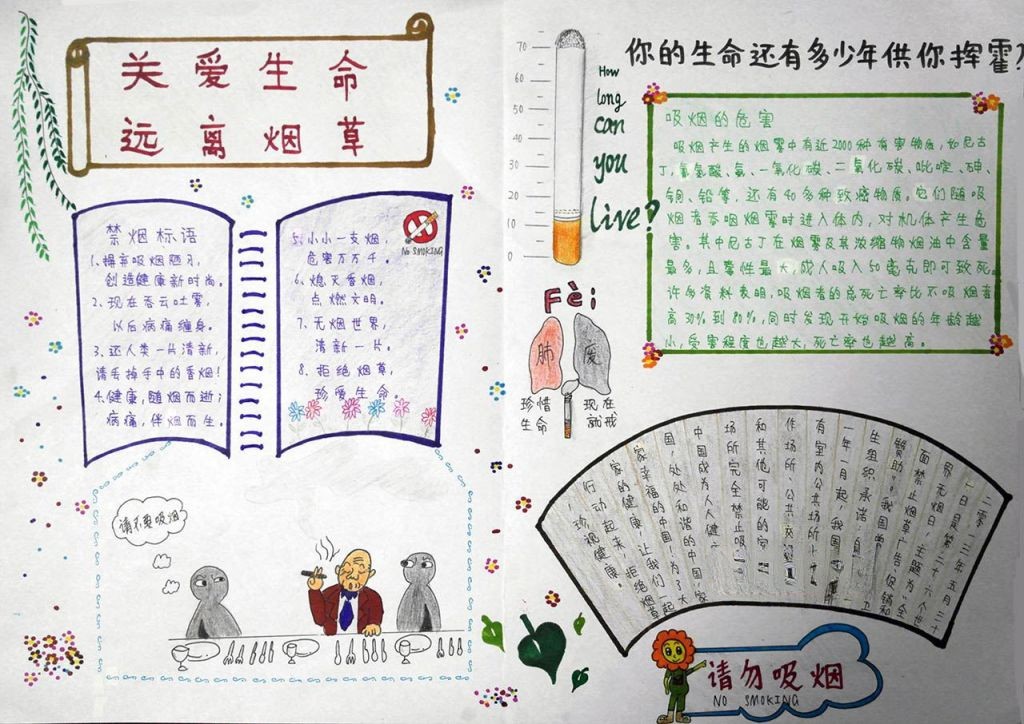 关爱生命
远离烟草
禁烟标语
1、摒弃吸烟陋习,
创造健康新时尚。
2、现在吞云吐雾,
以后病痛缠身。
3、还人类一片清新,
请丢掉手中的香烟!
4、健康,随烟而逝;
病痛,伴烟而生。
5、小小一支烟,
危害万万千。
6、熄灭香烟,
点燃文明。
7、无烟世界,
清新一片。
8、拒绝烟草,
珍爱生命
NO SMOKING
请不要吸烟
70
60
50
40
30
20
10
0
How
long
can
you
live?
你的生命还有多少年供你挥霍?
吸烟的危害
吸烟产生的烟雾中有近2000种有害物质,如尼古
丁、氰氢酸、氨、一氧化碳、二氧化碳、吡啶、砷、
铜、铅等,还有40多种致癌物质。它们随吸
烟者吞咽烟雾时进入体内,对机体产生危
害。其中尼古丁在烟雾及其浓缩物烟油中含量
最多,且毒性最大,成人吸入50毫克即可致死。
许多资料表明,吸烟者的总死亡率比不吸烟者
高30%到80%,同时发现开始吸烟的年龄越
小,受害程度也越大,死亡率也越高。
Fèi
肺 废
珍惜 现在
生命 就戒
二零一三年五月三十
一日是第二十六个世
界无烟日,主题为“全
面禁止烟草广告、促销和
赞助”。我国
生组织承诺,自
一年一月起,我国
有室内公共场所、
作场所、公共交通
和其他可能的
场所完全禁止吸
中国成为人人健
国,处处和谐的中国,家
家幸福的中国!为了大
家的健康,让我们一起
行动起来,拒绝烟草
珍视健康。
请勿吸烟
NO SMOKING